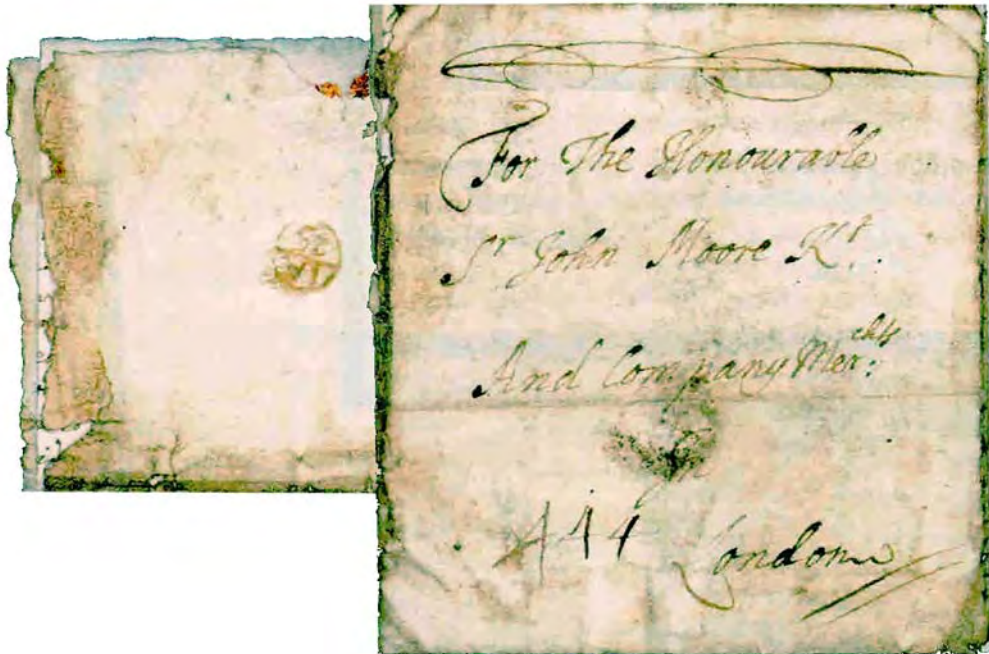 For The Honourable
Sr John Moore Kt.
And Company Merchts:
London